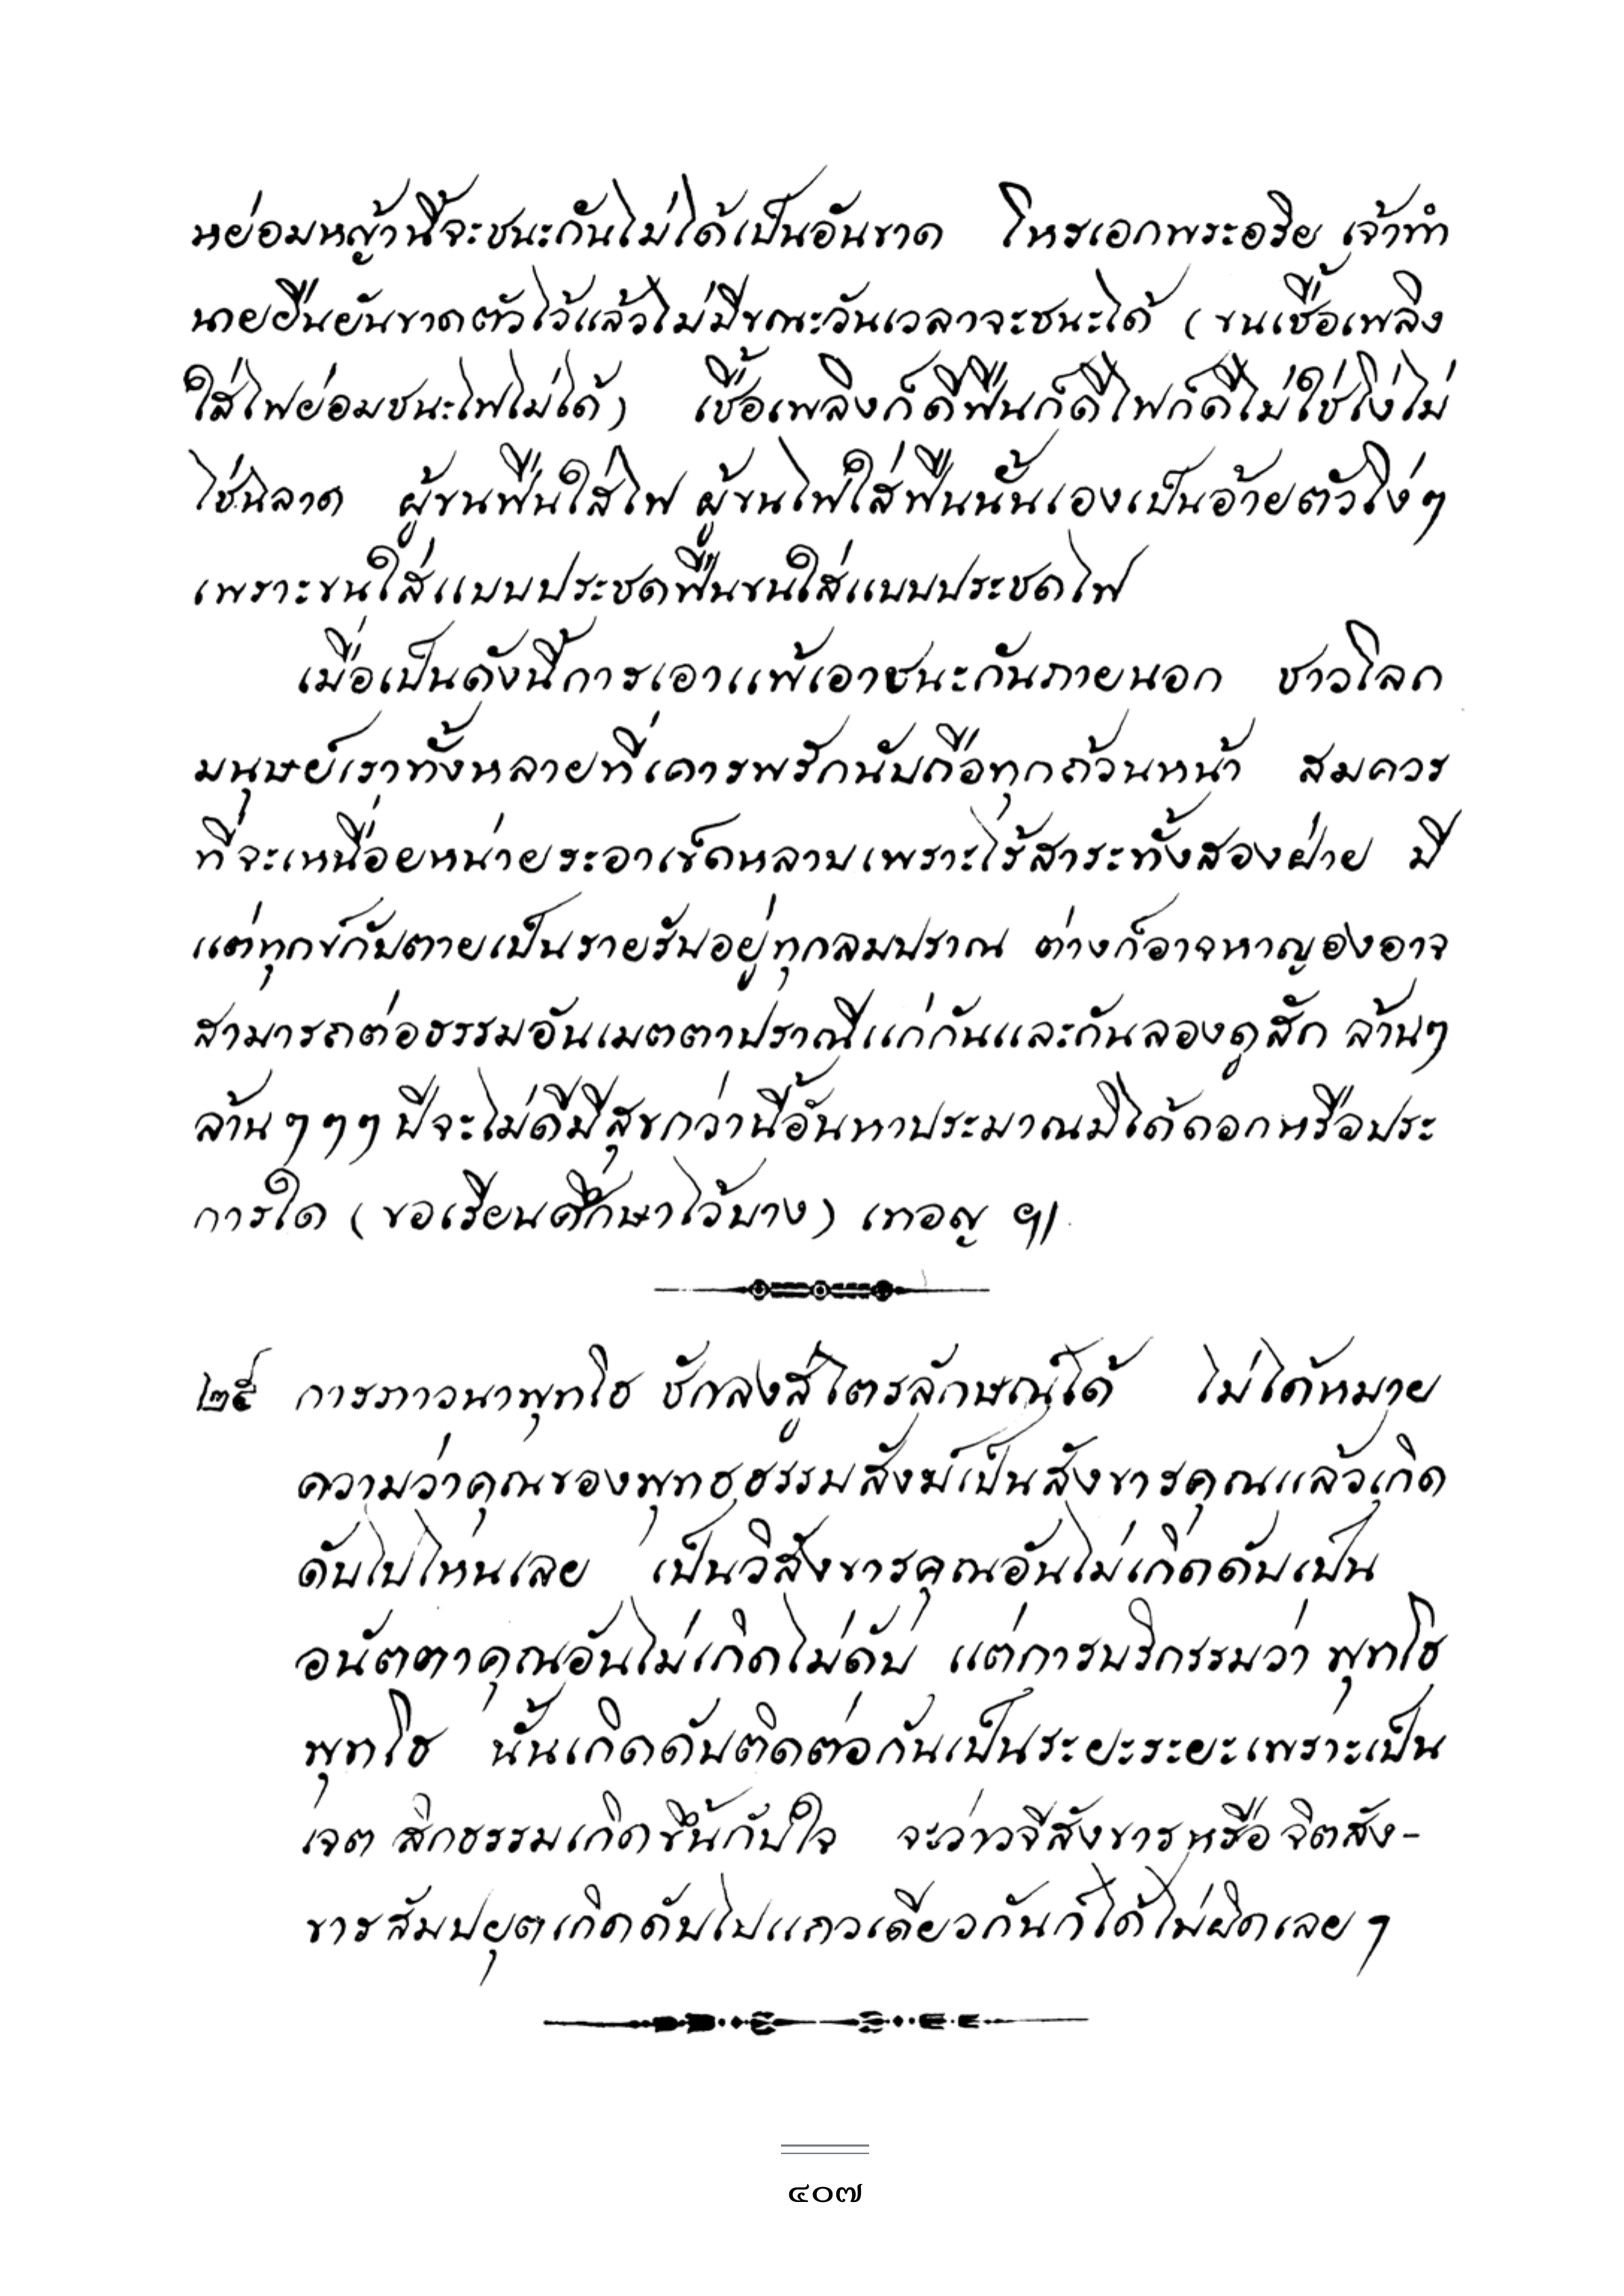 หย่อมหญ้านี้จะชนะกันไม่ได้เป็นอันขาด โหรเอกพระอริยเจ้าทำ
นายยืนยันขาดตัวไว้แล้วไม่มีขณะวันเวลาจะชนะได้ (ขนเชื้อเพลิง
ใส่ไฟย่อมชนะไฟไม่ได้) เชื้อเพลิงก็ดีฟืนก็ดีไฟก็ดีไม่ใช่โง่ไม่
ใช่ฉลาด ผู้ขนฟืนใส่ไฟ ผู้ขนไฟใส่ฟืนนั้นเองเป็นอ้ายตัวโง่ๆ
เพราะขนใส่แบบประชดฟืนขนใส่แบบประชดไฟ
เมื่อเป็นดังนี้การเอาแพ้เอาชนะกันภายนอก ชาวโลก
มนุษย์เราทั้งหลายที่เคารพรักนับถือทุกถ้วนหน้า สมควร
ที่จะเหนื่อยหน่ายระอาเข็ดหลาบเพราะไร้สาระทั้งสองฝ่าย มี
แต่ทุกข์กับตายเป็นรายรับอยู่ทุกลมปราณ ต่างก็อาจหาญองอาจ
สามารถต่อธรรมอันเมตตาปราณีแก่กันและกันลองดูสัก ล้านๆ
ล้านๆๆๆ ปีจะไม่ดีมีสุขกว่านี้อันหาประมาณมิได้ดอกหรือประ
การใด (ขอเรียนศึกษาไว้บาง) เทอญ ฯ|
๒๕ การภาวนาพุทโธ ชักลงสู่ไตรลักษณ์ได้ ไม่ได้หมาย
ความว่าคุณของพุทธธรรมสังฆ์เป็นสังขารคุณแล้วเกิด
ดับไปไหนเลย เป็นวิสังขารคุณอันไม่เกิดดับเป็น
อนัตตาคุณอันไม่เกิดไม่ดับ แต่การบริกรรมว่า พุทโธ
พุทโธ นั้นเกิดดับติดต่อกันเป็นระยะระยะเพราะเป็น
เจตสิกธรรมเกิดขึ้นกับใจ จะว่าวจีสังขารหรือจิตสัง-
ขารสัมปยุตเกิดดับไปแถวเดียวกันก็ได้ไม่ผิดเลยๆ
๔๐๗